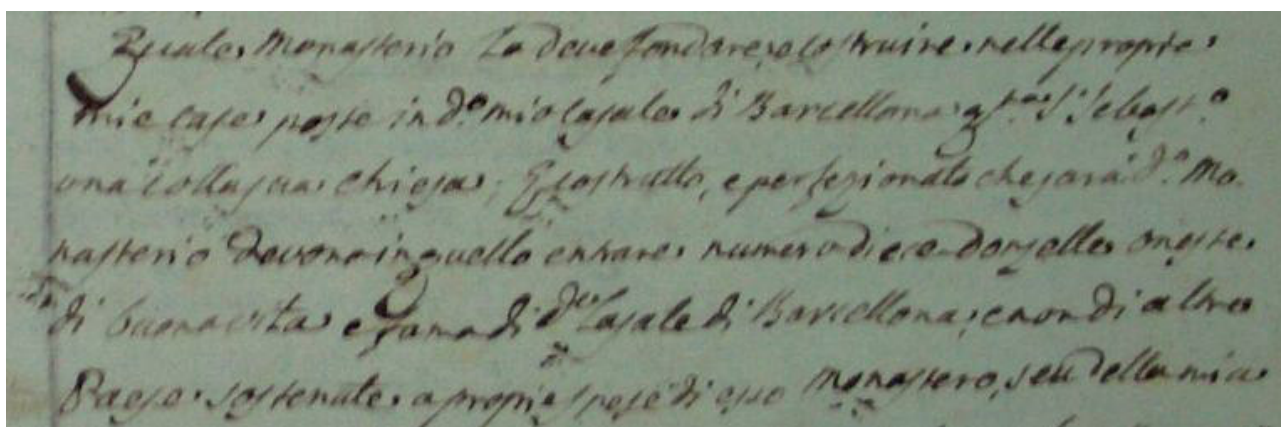 Quale Monasterio la deve fondare, e costruire nelle proprie
mie case poste in d.º mio Casale di Barcellona S. Sebast.º
una colla sua chiesa; E costrutto, e perfezionato che sarà d.º Mo
nasterio devono in quello entrare numero diece donzelle oneste
di buona vita e fama di d.º Casale di Barcellona, e non di altro
Paese sostenute a proprie spese di esso Monastero, seu della mia